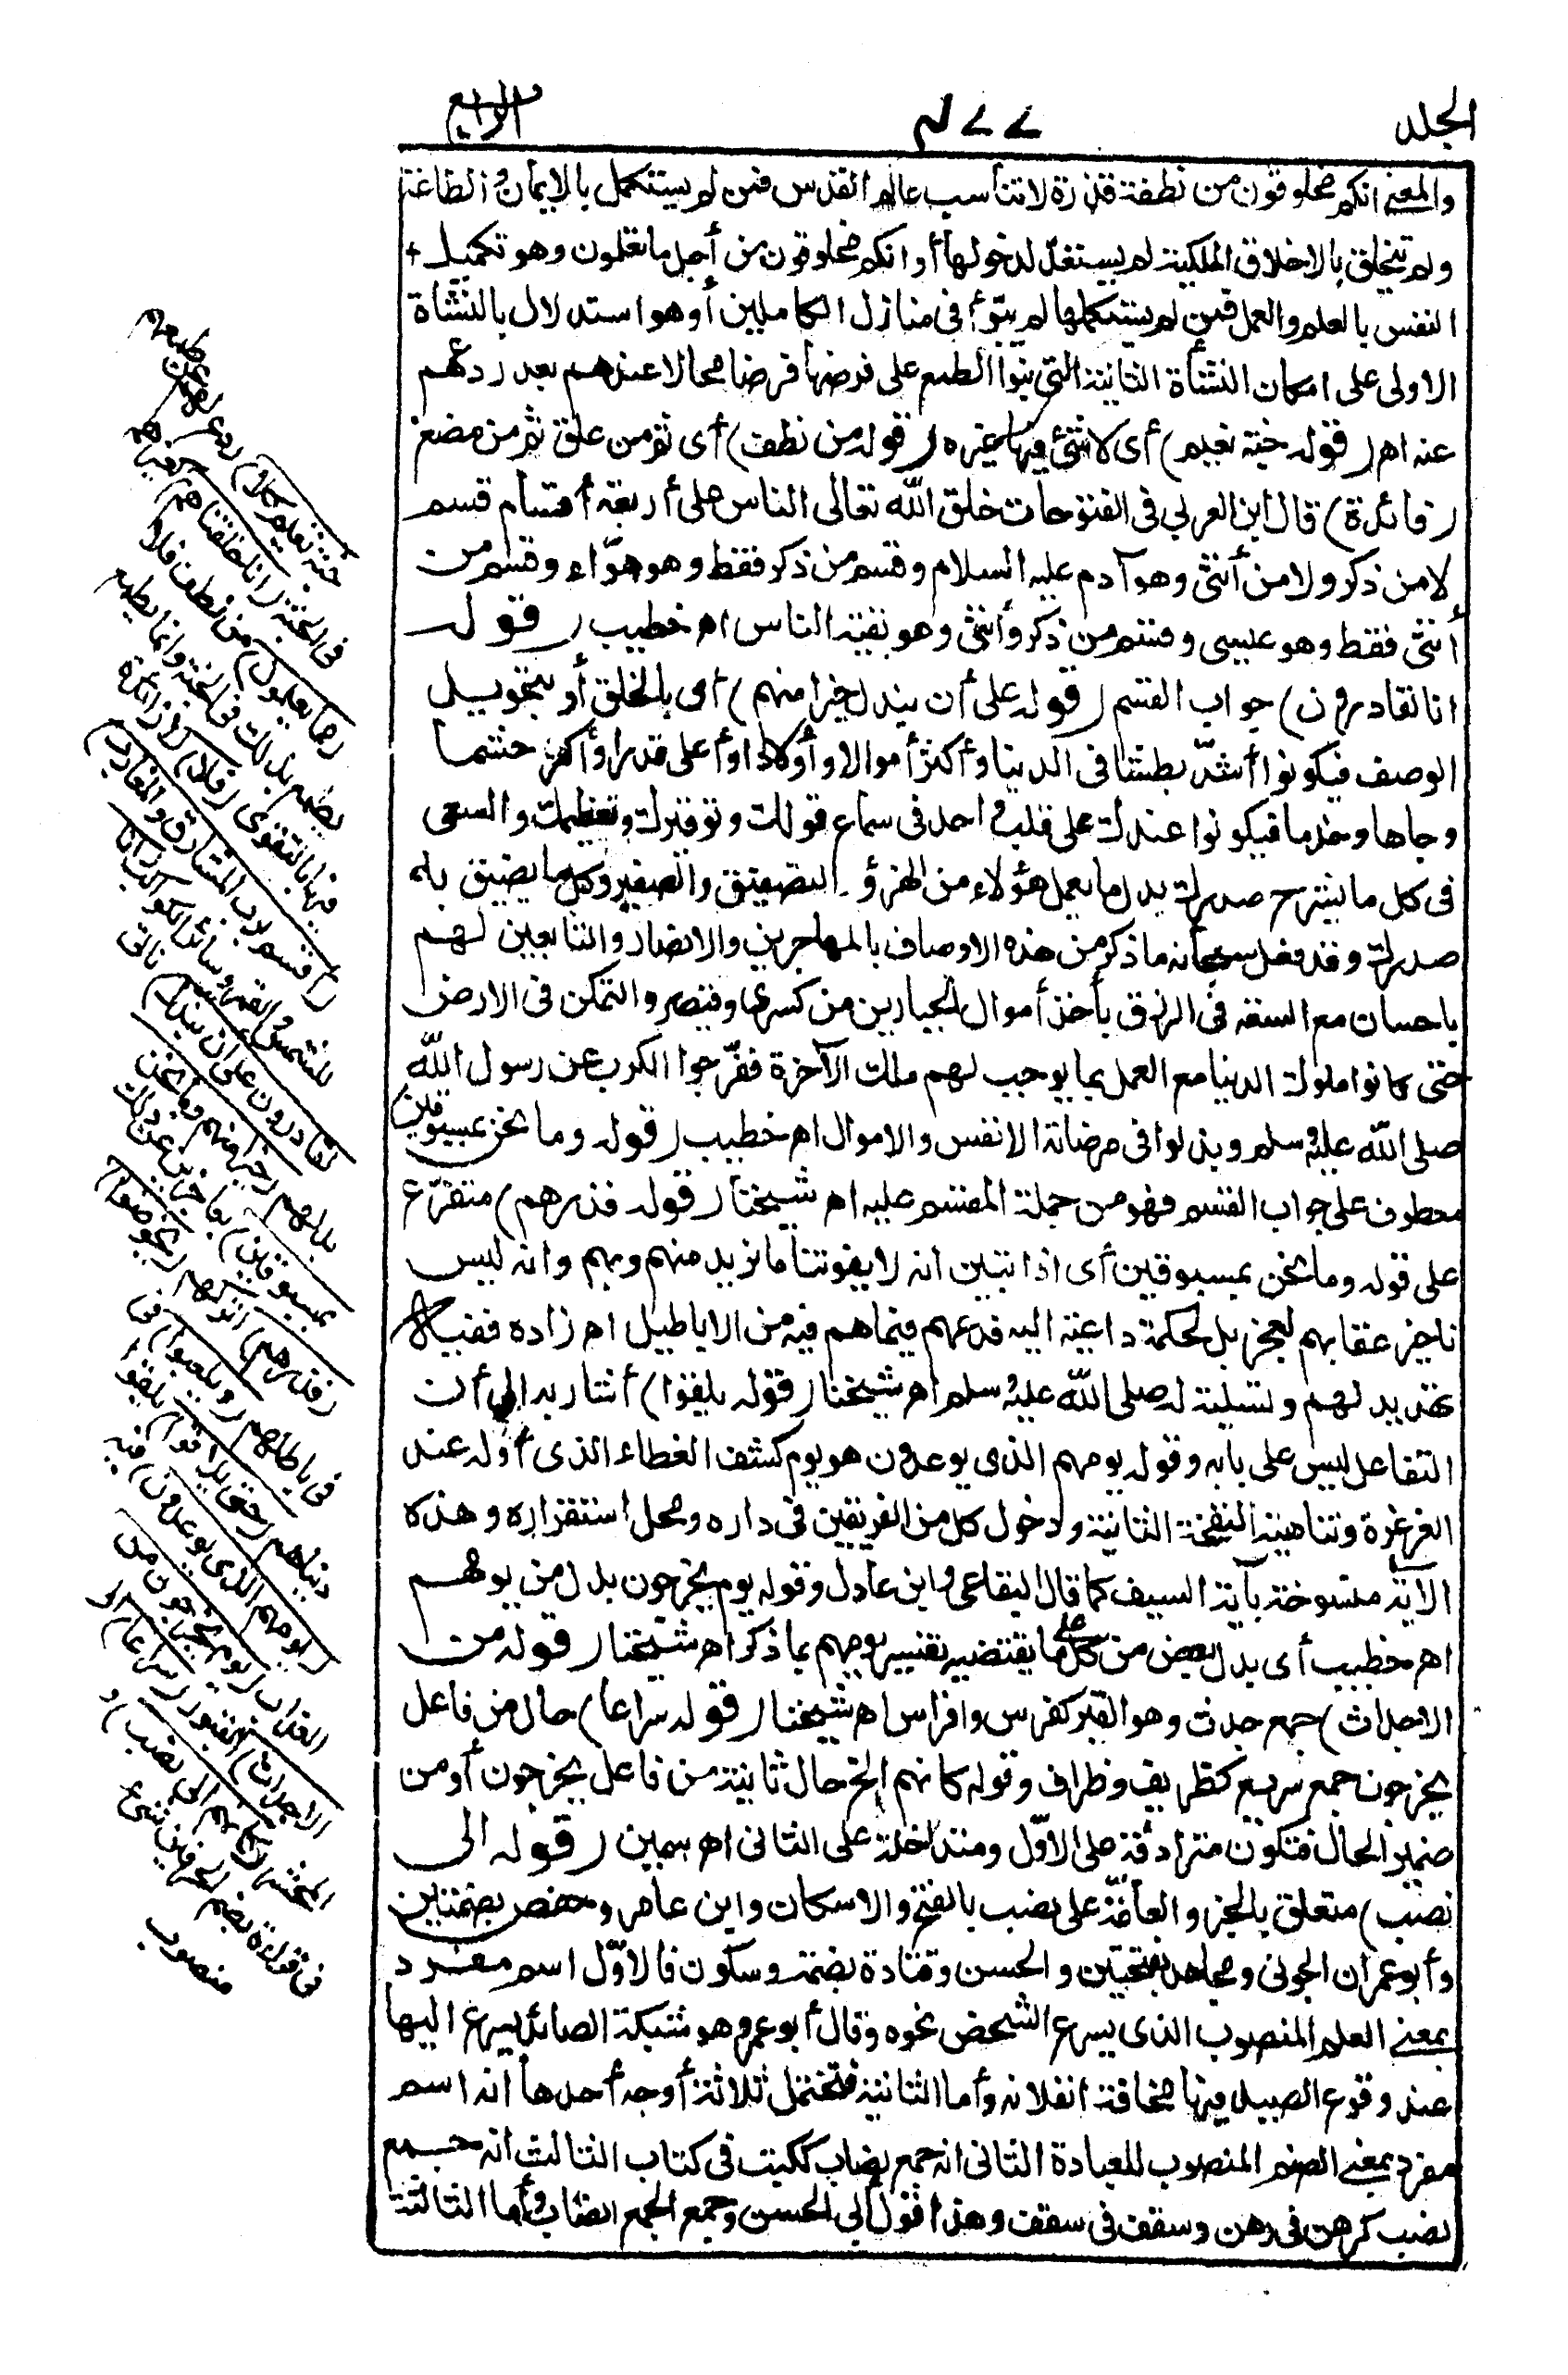 الجلد ٤٧٧ الرابع
والمعنى انكم مخلوقون من نطفة قذرة لا تناسب عالم القدس فمن لم يستكمل بالايمان والطاعة
ولم يتخلق بالاخلاق الملكية لم يستعد لدخولها أو انكم مخلوقون من أجل ما تعلمون وهو تكميل
النفس بالعلم والعمل فمن لم يستكملها لم يتبوأ في منازل الكاملين أو هو استدلال بالنشأة
الاولى على امكان النشأة الثانية التي بنوا الطمع على فرضها فرضا محالا عندهم بعد ردعهم
عنه اه (قوله جنة نعيم) أى لا شئ فيها غيره (قوله من نطف) أى ثم من علق ثم من مضغ
(فائدة) قال ابن العربي في الفتوحات خلق الله تعالى الناس على أربعة أقسام قسم
لا من ذكر ولا من أنثى وهو آدم عليه السلام وقسم من ذكر فقط وهو حوّاء وقسم من
أنثى فقط وهو عيسى وقسم من ذكر وأنثى وهو بقية الناس اه خطيب (قوله
انا لقادرون) جواب القسم (قوله على أن نبدل خيرا منهم) أى بالخلق أو بتحويل
الوصف فيكونوا أشدّ بطشا في الدنيا وأكثر أموالا وأولادا وأعلى قدرا وأكثر حشما
وجاها وخدما فيكونوا عندك على قلب واحد في سماع قولك وتوقيرك وتعظيمك والسعى
في كل ما يشرح صدرك بدل ما يعمل هؤلاء من الهزؤ والتصفيق والصفير وكل ما يضيق به
صدرك وقد فعل سبحانه ما ذكر من هذه الاوصاف بالمهاجرين والانصار والتابعين لهم
باحسان مع السعة في الرزق بأخذ أموال الجبارين من كسرى وقيصر والتمكن في الارض
حتى كانوا ملوك الدنيا مع العمل بما يوجب لهم ملك الآخرة ففرّجوا الكرب عن رسول الله
صلى الله عليه وسلم وبذلوا في مرضاته الانفس والاموال اه خطيب (قوله وما نحن بمسبوقين)
معطوف على جواب القسم فهو من جملة المقسم عليه اه شيخنا (قوله فذرهم) متفرّع
على قوله وما نحن بمسبوقين أى اذا تبين انه لا يفوتنا ما نريد منهم وبهم وانه ليس
تاخير عقابهم لعجز بل لحكمة داعية اليه فدعهم فيما هم فيه من الاباطيل اه زاده ففيه
تهديد لهم وتسلية له صلى الله عليه وسلم اه شيخنا (قوله يلقوا) أشار به الى أن
التفاعل ليس على بابه وقوله يومهم الذى يوعدون هو يوم كشف الغطاء الذى أوله عند
الغرغرة وتناهيه النفخة الثانية ودخول كل من الفريقين في داره ومحل استقراره وهذه
الآية منسوخة بآية السيف كما قال البقاعى وابن عادل وقوله يوم يخرجون بدل من يومهم
اه خطيب أى بدل بعض من كل على ما يقتضيه تفسير يومهم بما ذكر اه شيخنا (قوله من
الاجداث) جمع جدث وهو القبر كفرس وافراس اه شيخنا (قوله سراعا) حال من فاعل
يخرجون جمع سريع كظريف وظراف وقوله كانهم الخ حال ثانية من فاعل يخرجون أو من
ضمير الحال فتكون مترادفة على الاوّل ومتداخلة على الثانى اه سمين (قوله الى
نصب) متعلق بالخبر والعامّة على نصب بالفتح والاسكان وابن عامر وحفص بضمتين
وأبو عمران الجونى ومجاهد بفتحتين والحسن وقتادة بضمة وسكون فالاوّل اسم مفرد
بمعنى العلم المنصوب الذى يسرع الشخص نحوه وقال أبو عمرو هو شبكة الصائد يسرع اليها
عند وقوع الصيد فيها مخافة انفلاته وأما الثانية فتحتمل ثلاثة أوجه أحدها انه اسم
مفرد بمعنى الصنم المنصوب للعبادة الثانى انه جمع نصاب ككتب في كتاب الثالث انه جمع
نصب كرهن في رهن وسقف في سقف وهذا قول أبى الحسن وجمع الجمع انصاب وأما الثالثة
جنة نعيم كلا) ردع لهم عن طمعهم
في الجنة (انا خلقناهم) كغيرهم
(مما يعلمون) من نطف فلا
يطمع بذلك في الجنة وانما يطمع
فيها بالتقوى (فلا) لا زائدة
(أقسم برب المشارق والمغارب)
للشمس والقمر وسائر الكواكب (انا
لقادرون على أن نبدل) نأتى
بدلهم (خيرا منهم وما نحن
بمسبوقين) بعاجزين عن ذلك
(فذرهم) اتركهم (يخوضوا)
في باطلهم (ويلعبوا) في
دنياهم (حتى يلاقوا) يلقوا
(يومهم الذى يوعدون) فيه
العذاب (يوم يخرجون من
الاجداث) القبور (سراعا) الى
المحشر (كانهم الى نصب) و
في قراءة بضم الحرفين شئ
منصوب